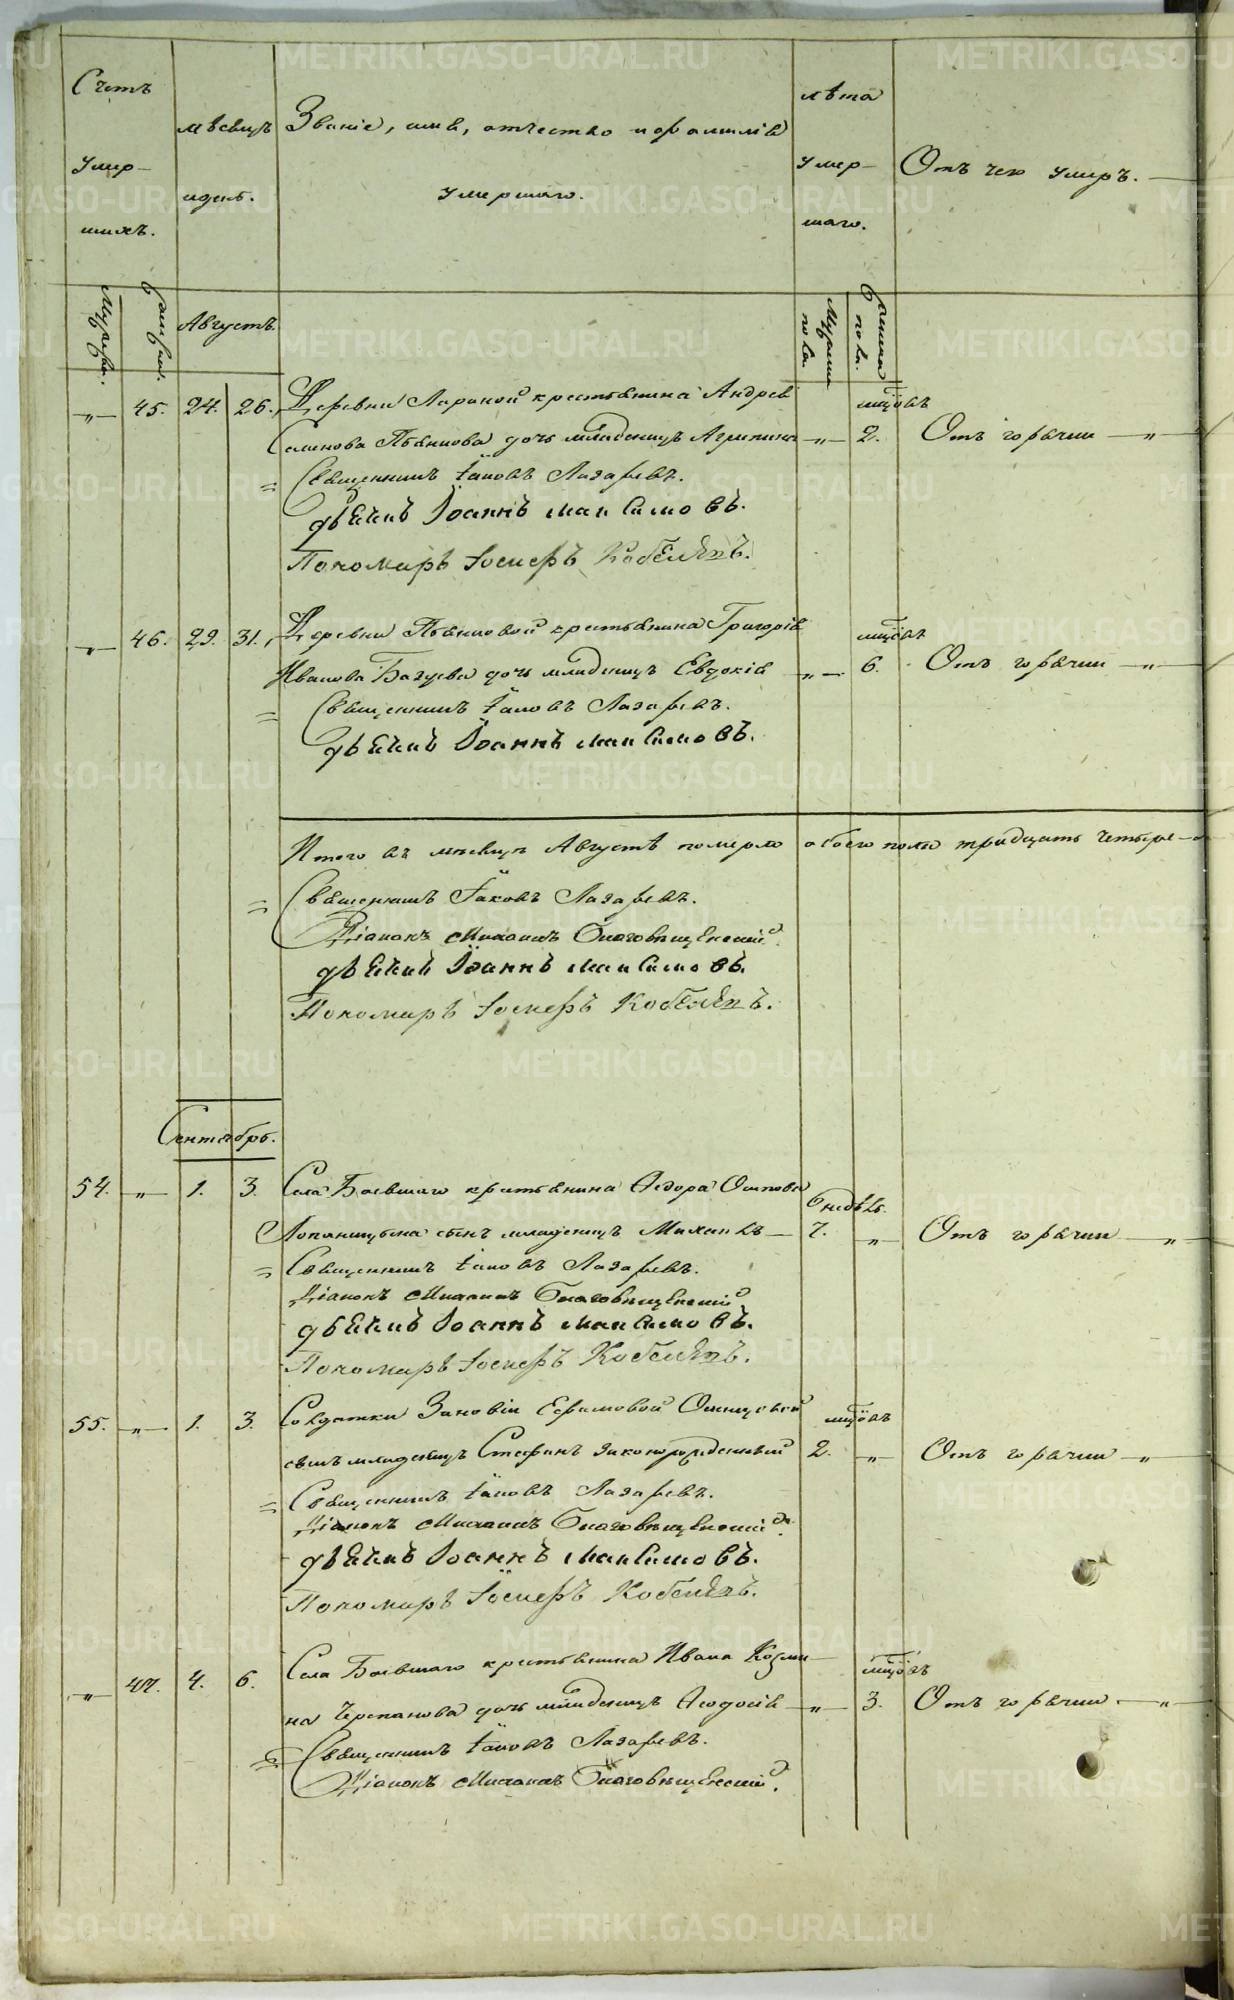 Счетъ
умер-
шихъ.
Мужеска.
Женска.
мѣсяцъ
и день.
Званіе, имя, отчество и фамилія
умершаго.
лѣта
умер-
шаго.
Мужеска пола.
Женска пола.
Отъ чего умеръ.
Августъ.
„ 45. 24. 26. Деревни крестьянина Андрея
Пьянкова дочь младенецъ Агрипина „ мцовъ 2. Отъ горячки „
= Священникъ Іаковъ Лазаревъ.
дьячикъ Іоаннъ максимовъ.
Пономарь Іосифъ Кобелевъ.
„ 46. 29. 31. Деревни Пьянковой крестьянина Григорія мцовъ
Иванова дочь младенецъ Евдокія „ 6. Отъ горячки „
= Священникъ Іаковъ Лазаревъ.
дьячикъ Іоаннъ максимовъ.
Итого въ мѣсяцѣ Августѣ померло обоего пола тридцать четыре
= Священникъ Іаковъ Лазаревъ.
Діаконъ Михаилъ Благовѣщенскій.
дьячикъ Іоаннъ максимовъ.
Пономарь Іосифъ Кобелевъ.
Сентябрь.
54. „ 1. 3. Села Боевскаго крестьянина Ѳедора Осипова недѣль
сынъ младенецъ Михаилъ 7. „ Отъ горячки „
= Священникъ Іаковъ Лазаревъ.
Діаконъ Михаилъ Благовѣщенскій
дьячикъ Іоаннъ максимовъ.
Пономарь Іосифъ Кобелевъ.
55. „ 1. 3. Солдатки Зиновіи Ефимовой мцовъ
сынъ младенецъ Стефанъ законорожденный 2. „ Отъ горячки „
= Священникъ Іаковъ Лазаревъ.
Діаконъ Михаилъ Благовѣщенскій.
дьячикъ Іоаннъ максимовъ.
Пономарь Іосифъ Кобелевъ.
„ 47. 4. 6. Села Боевскаго крестьянина Ивана Козми- мцовъ
на Черепанова дочь младенецъ Ѳеодосія „ 3. Отъ горячки „
= Священникъ Іаковъ Лазаревъ.
Діаконъ Михаилъ Благовѣщенскій.
METRIKI.GASO-URAL.RU